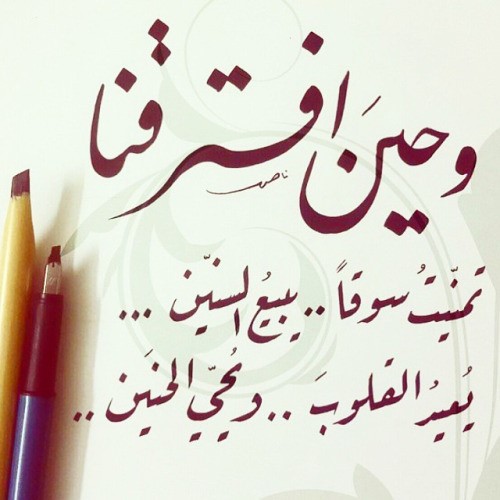 وحينَ افترقنا
ناصر
تمنّيتُ سوقاً .. يبيعُ السنيّن ...
يُعيدُ القلوبَ .. ويُحيّي الحنَين ..